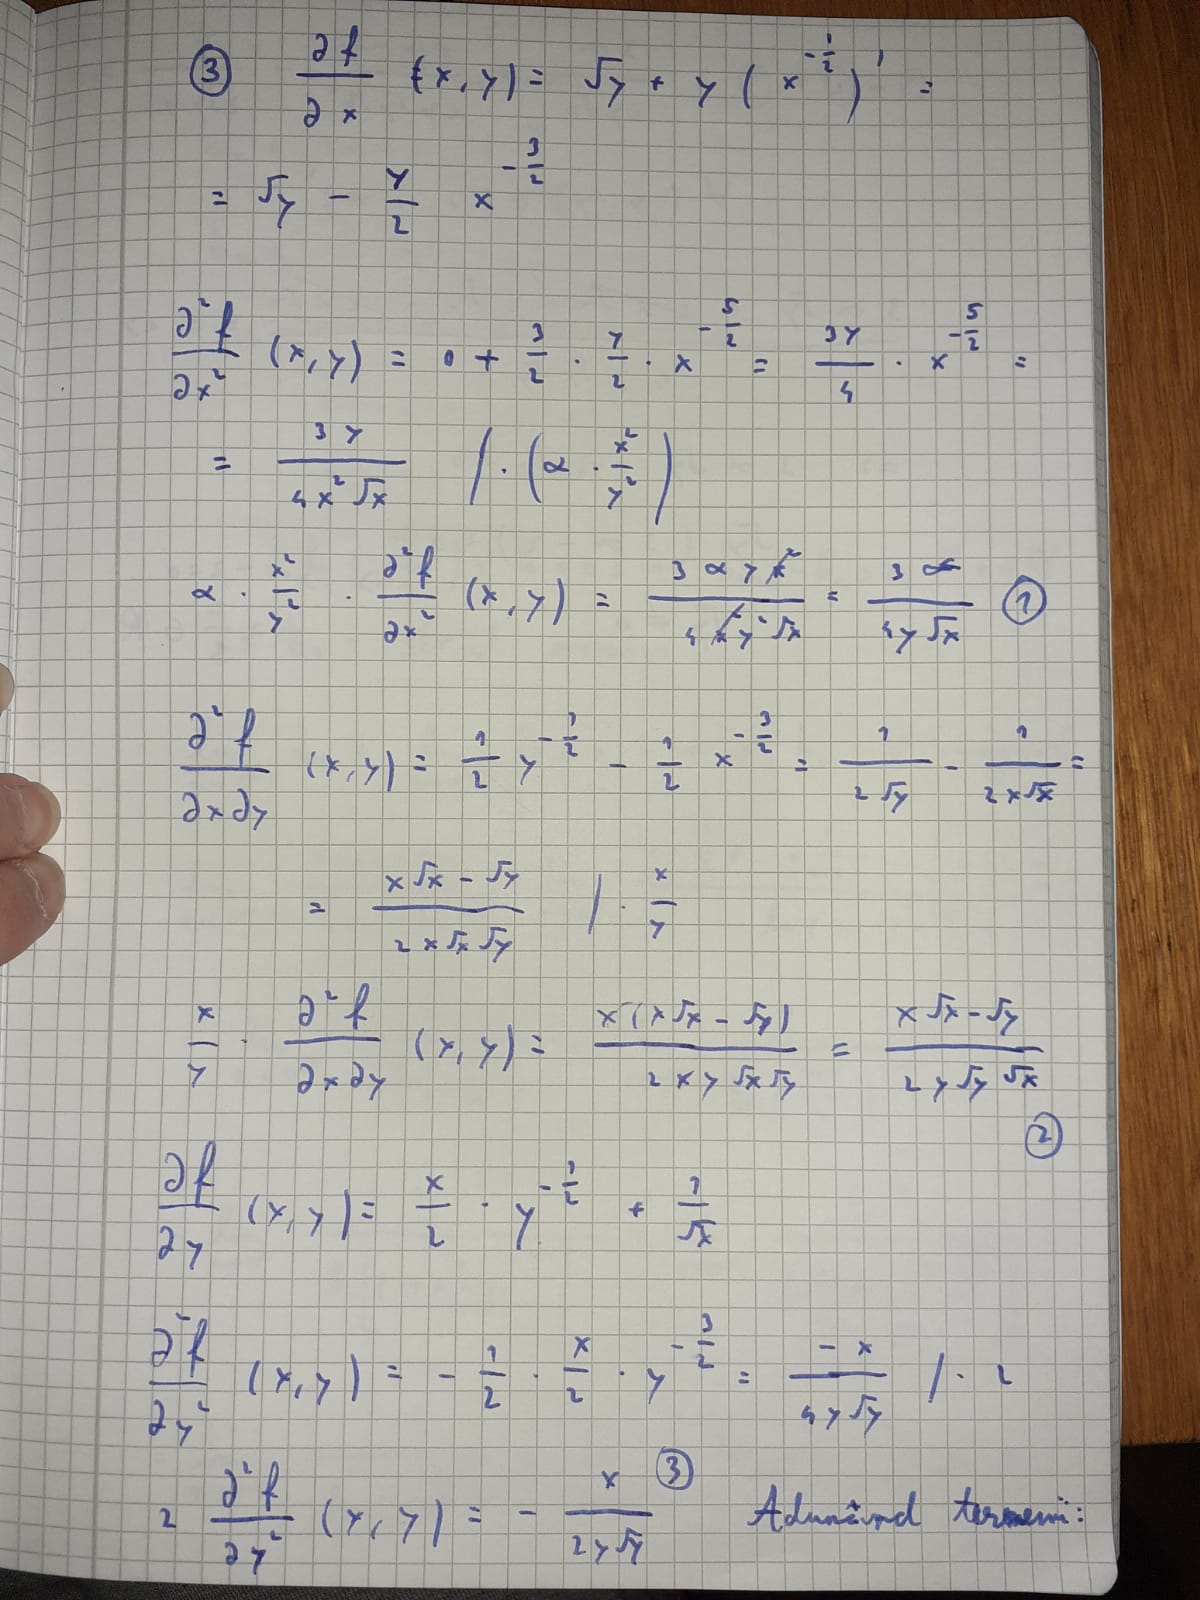 ③ ∂f/∂x (x, y) = √y + y (x^(-1/2))' =
= √y - y/2 x^(-3/2)
∂²f/∂x² (x, y) = 0 + 3/2 · y/2 · x^(-5/2) = 3y/4 · x^(-5/2) =
= 3y/(4x²√x) / · (α · x²/y²)
α · x²/y² · ∂²f/∂x² (x, y) = 3αyx²/(4x²y²√x) = 3α/(4y√x) ①
∂²f/∂x∂y (x, y) = 1/2 y^(-1/2) - 1/2 x^(-3/2) = 1/(2√y) - 1/(2x√x) =
= (x√x - √y)/(2x√x√y) / · x/y
x/y · ∂²f/∂x∂y (x, y) = x(x√x - √y)/(2xy√x√y) = (x√x - √y)/(2y√y√x)
②
∂f/∂y (x, y) = x/2 · y^(-1/2) + 1/√x
∂²f/∂y² (x, y) = - 1/2 · x/2 · y^(-3/2) = -x/(4y√y) / · 2
2 ∂²f/∂y² (x, y) = - x/(2y√y) ③ Adunând termenii: